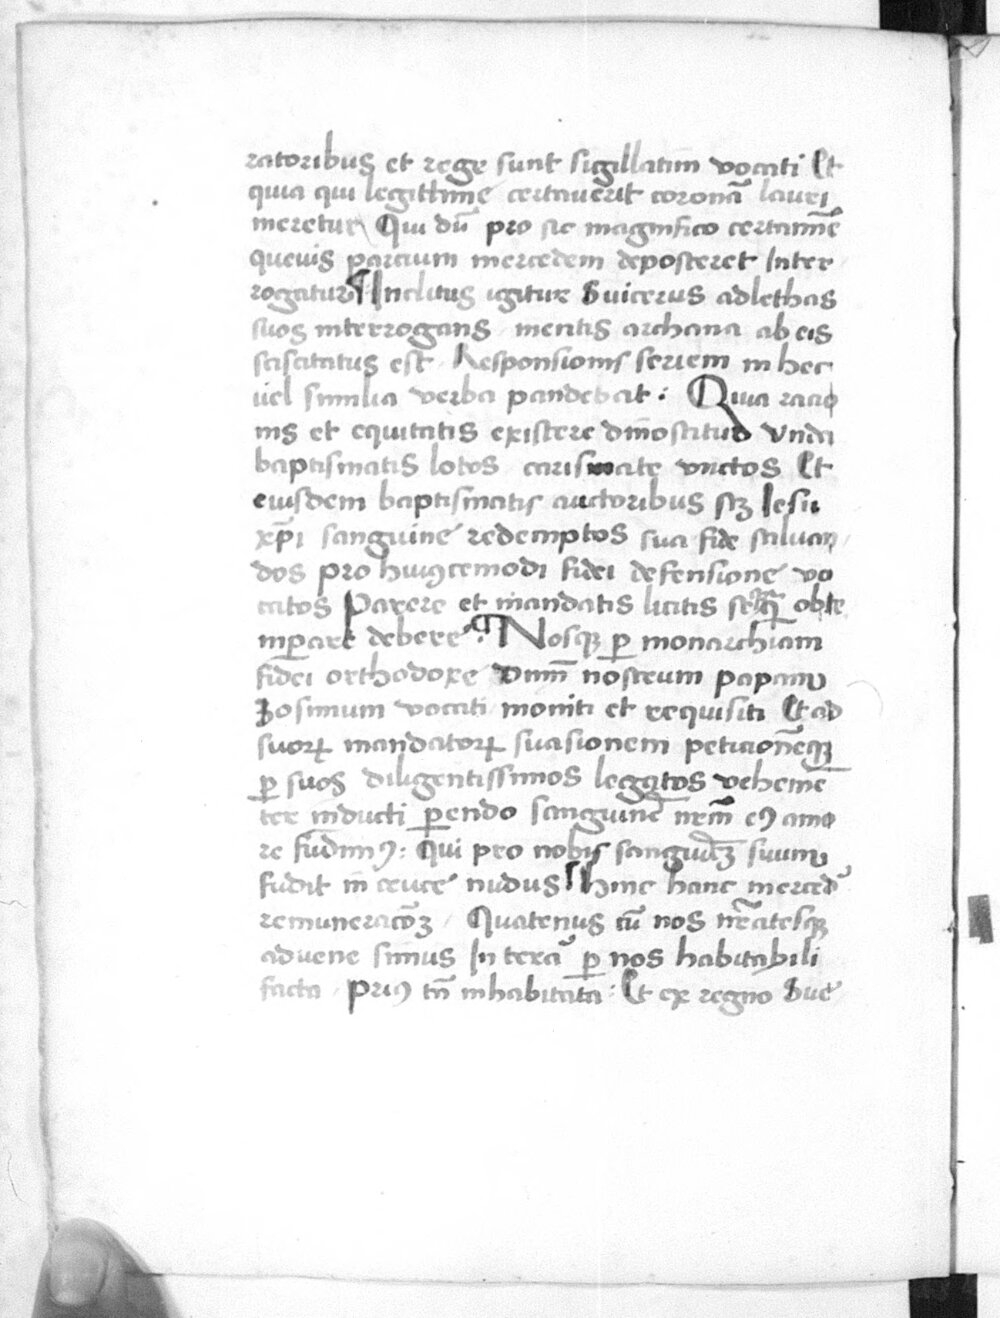 ratoribus et rege sunt sigillatim vocati Et
quia qui legittime certaverit coronā lauri
meretur Qui dū pro sic magnifico certamīe
quevis parcium mercedem deposceret Inter
rogatur ¶ Inclitus igitur Suicerus adlethas
suos interrogans mentis archana ab eis
sciscitatus est Responsionis seriem in hec
uel similia verba pandebat : Quia racio
nis et equitatis existere dinostitur Undā
baptismatis lotos carismate unctos Et
eiusdem baptismatis auctoribus scꝫ Iesu
xp̄i sanguine redemptos sua fide saluan
dos pro huiꝯcemodi fidei defensione vo
catos Parere et mandatis licitis obte
mꝑare debere ¶ Nosqꝫ ꝑ monarchiam
fidei orthodoxe Dnm̄ nostrum papam
Zosimum vocati moniti et requisiti Et ad
suorꝝ mandatorꝝ suasionem peticionēqꝫ
ꝑ suos diligentissimos leggatos vehemē
ter inducti ꝑendo sanguinē nr̄m eꝯ amo
re fudimꝯ : Qui pro nobis suum
fudit in cruce nudus ¶ Hinc hanc mercedē
remuneracōꝫ Quatenus cū nos nr̄ateſqꝫ
advene simus In terā ꝑ nos habitabili
facta priꝯ tn̄ inhabitata : Et ex regno Sue